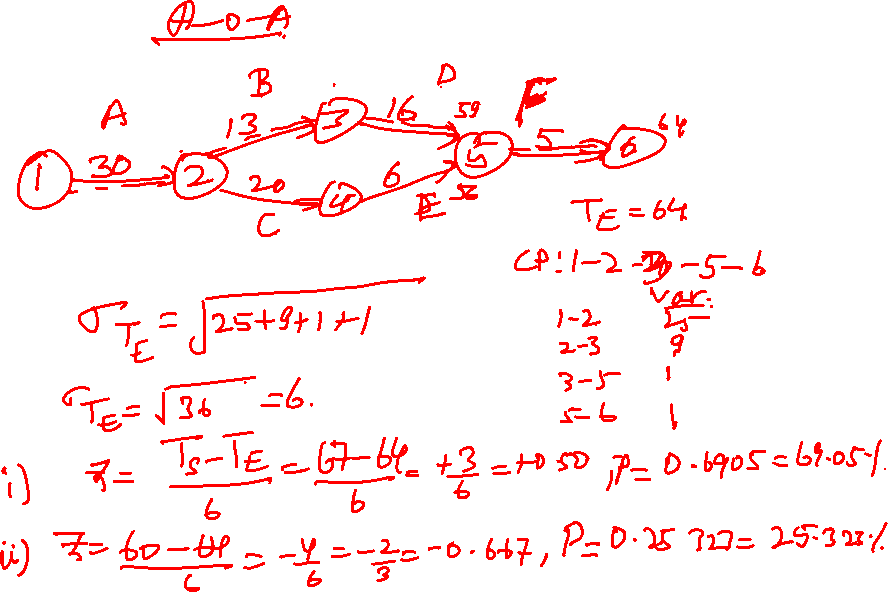 A-O-A
A B D F
30 13 16 59 5 64
1 2 3 4 5 6
20 6 56
C E
T_E = 64
CP: 1-2-3-5-6
Var:
1-2 25
2-3 9
3-5 1
5-6 1
σ_{T_E} = √25+9+1+1
σ_{T_E} = √36 = 6.
i) z = (T_s - T_E)/6 = (67-64)/6 = +3/6 = +0.50, P = 0.6905 = 69.05%.
ii) z = (60-64)/6 = -4/6 = -2/3 = -0.667, P = 0.25327 = 25.323%